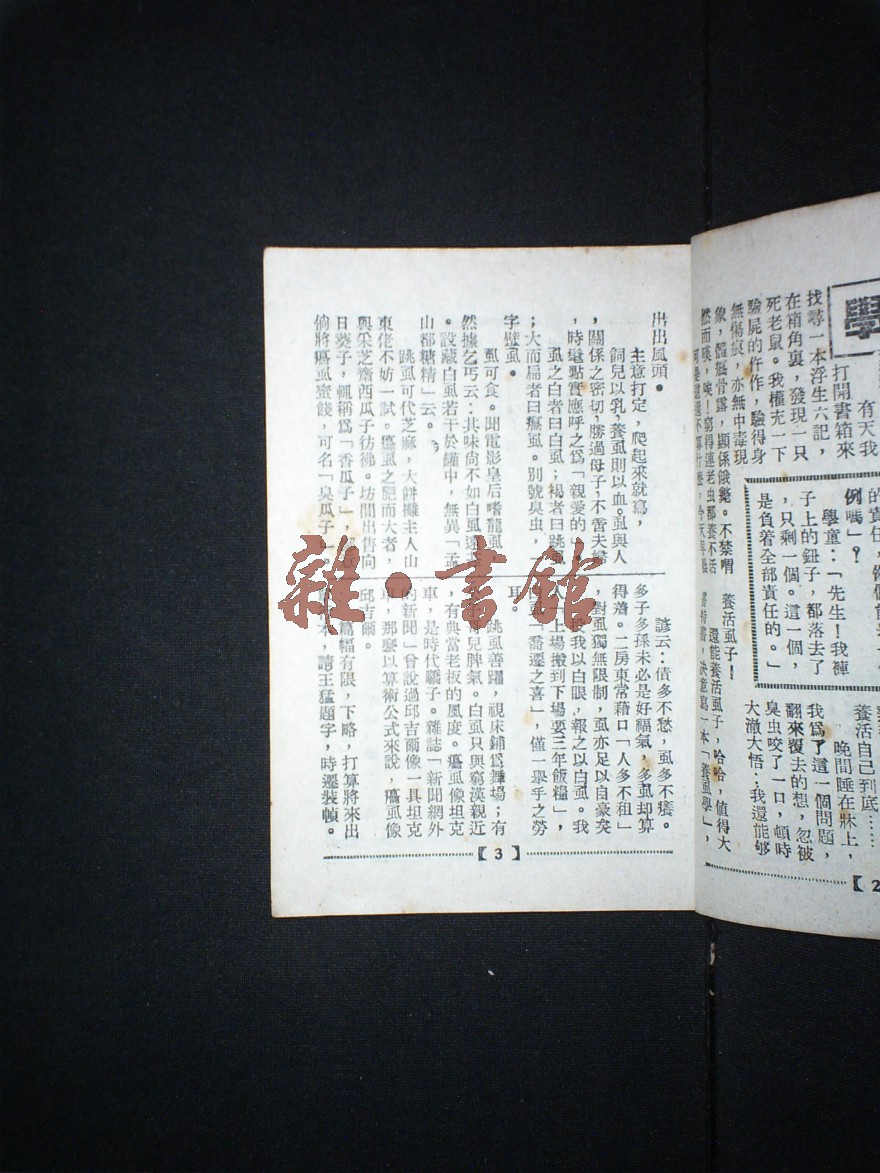 學
有天我
打開書箱來
找尋一本浮生六記，
在箱角裏，發現一只
死老鼠。我權充一下
驗屍的仵作，驗得身
無傷痕，亦無中毒現
象，髒癟骨露，顯係餓斃。不禁喟
然而嘆，唉！窮得連老虫都養不活
的責任，
例嗎」？
學童：「先生！我褲
子上的鈕子，都落去了
，只剩一個。這一個，
是負着全部責任的。」
養活自己到底……
晚間睡在牀上，
翻來覆去的想，忽被
我爲了這一個問題，
臭虫咬了一口，頓時
大澈大悟：我還能够
養活虱子！
還能養活虱子，哈哈，值得大
書特書，決意寫一本「養虱學」，
【2
出出風頭。
主意打定，爬起來就寫，
飼兒以乳，養虱則以血。虱與人
，關係之密切，勝過母子，不啻夫婦
，時髦點實應呼之爲「親愛的」。
虱之白者曰白虱；褐者曰跳虱
；大而扁者曰癟虱。別號臭虫，一
字壁虱。
虱可食。聞電影皇后嗜龍虱，
然據乞丐云：其味尚不如白虱遠甚
。設藏白虱若干於罐中，無異「孟
山都糖精」云。
跳虱可代芝麻，大餅攤主人山
東佬不妨一試。癟虱之肥而大者，
與采芝齋西瓜子彷彿。坊間出售向
日葵子，輒稱爲「香瓜子」，
倘將癟虱蜜餞，可名「臭瓜子」。
諺云：債多不愁，虱多不癢。
多子多孫未必是好福氣，多虱却算
得濶。二房東常藉口「人多不租」
，對虱獨無限制，虱亦足以自豪矣
投我以白眼，報之以白虱。我
上場搬到下場要三年飯糧」，
白虱「喬遷之喜」，僅一舉手之勞
耳。
跳虱善躍，視床鋪爲舞場；有
哥兒脾氣。白虱只與窮漢親近
，有典當老板的風度。癟虱像坦克
車，是時代驕子。雜誌「新聞網外
的新聞」曾說過邱吉爾像一具坦克
車，那麼以算術公式來說，癟虱像
邱吉爾。
篇幅有限，下略，打算將來出
本，請王猛題字，時遷裝幀。
【3】
雜·書館